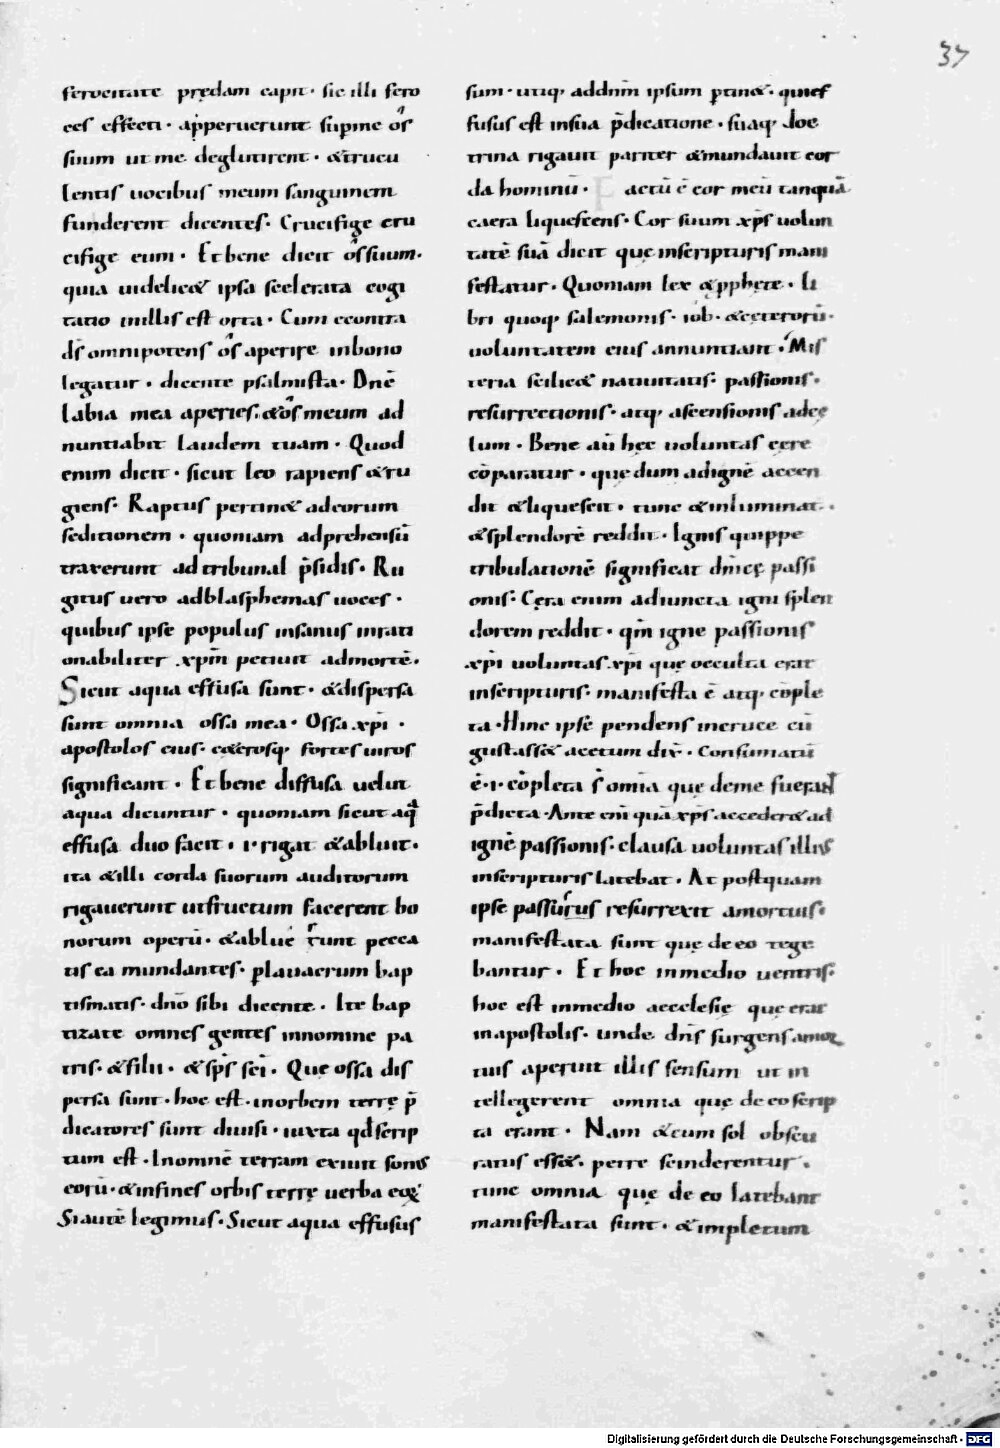 37
ferocitate prędam capit · sic illi fero
ces effecti · apperuerunt sup me os̄
suum ut me deglutirent · & trucu
lentis uocibus meum sanguinem
funderent dicentes · Crucifige cru
cifige eum · Et bene dicit os̄ suum ·
quia uidelic& ipsa scelerata cogi
tatio in illis est orta · Cum econtra
d̄s omnipotens os aperire in bono
legatur · dicente psalmista · Dn̄e
labia mea aperies · & os meum ad
nuntiabit laudem tuam · Quod
enim dicit · sicut leo rapiens & ru
giens · Raptus pertin& ad eorum
seditionem · quoniam adprehensū
traxerunt ad tribunal p̄sidis · Ru
gitus uero ad blasphemas uoces ·
quibus ipse populus insanus inrati
onabiliter xp̄m petiuit ad mortē ·
Sicut aqua effusa sunt · & dispersa
sunt omnia ossa mea · Ossa xp̄i ·
apostolos eius · c&erosq· fortes uiros
significant · Et bene diffusa uelut
aqua dicuntur · quoniam sicut aq̄
effusa duo facit · i · rigat & abluit ·
ita & illi corda suorum auditorum
rigauerunt ut fructum facerent bo
norum operū · & ablue runt pecca
tis ea mundantes · p lauacrum bap
tismatis · dn̄o sibi dicente · Ite bap
tizate omnes gentes in nomine pa
tris · & filii · & sp̄s sc̄i · Que ossa dis
persa sunt · hoc est · in orbem terrę p̄
dicatores sunt diuisi · iuxta qd̄ scrip
tum est · In omnē terram exiuit sonus
eorū · & in fines orbis terrę uerba eoꝝ
Si autē legimus · Sicut aqua effusus
sum · utiq· ad dn̄m ipsum ptin& · qui ef
fusus est in sua p̄dicatione · suaq· doc
trina rigauit pariter & mundauit cor
da hominū · Factū ē cor meū tanquā
caera liquescens · Cor suum xp̄s uolun
tatē suā dicit que in scripturis mani
festatur · Quoniam lex & pph&e · li
bri quoq· salemonis · iob · & cęterorū ·
uoluntatem eius annuntiant · Mis
teria scilic& natiuitatis · passionis ·
resurrectionis · atq· ascensionis ad cę
lum · Bene aū hęc uoluntas cęre
cōparatur · quę dum ad ignē accen
dit & liquescit · tunc & inluminat ·
& splendorē reddit · Ignis quippe
tribulationē significat dn̄icę passi
onis · Cęra enim adiuncta igni splen
dorem reddit · qm̄ igne passionis
xp̄i uoluntas xp̄i quę occulta erat
in scripturis · manifesta ē atq· cōple
ta · Hinc ipse pendens in cruce cū
gustass& acetum dix̄ · Consumatū
ē · i · cōpleta s̄ om̄ia quę de me fuerant
p̄dicta · Ante en̄i quā xp̄s acceder& ad
ignē passionis · clausa uoluntas illius
in scripturis latebat · At postquam
ipse passurus resurrexit a mortuis ·
manifestata sunt quę de eo tege
bantur · Et hoc in medio uentris ·
hoc est in medio aecclesię quę erat
in apostolis · unde dn̄s surgens a mor
tuis aperuit illis sensum ut in
tellegerent omnia quę de eo scrip
ta erant · Nam & cum sol obscu
ratus ess& · petre scinderentur ·
tunc omnia quę de eo latebant
manifestata sunt · & impletum
Digitalisierung gefördert durch die Deutsche Forschungsgemeinschaft - DFG